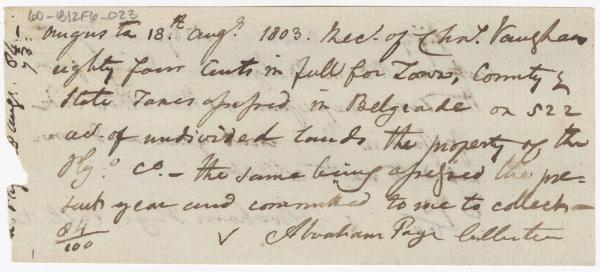 60-B12F6-023
Augusta 18.th Augt. 1803. Recd. of Chas. Vaughan
eighty four Cents in full for Town, County &
State Taxes assessed in Belgrade on 522
acs. of undivided Lands the property of the
Plyo. Co. - the same being assessed the pre-
sent year and committed to me to collect -
84/100
Abraham Page Collector